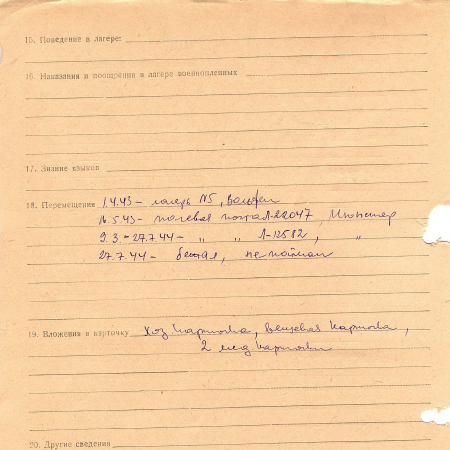 15. Поведение в лагере:
16. Наказания и поощрения в лагере военнопленных
17. Знание языков
18. Перемещения 1.4.43 – лагерь №5, Вольфен
16.5.43 – полевая почта Л-22047, Мюнстер
9.3. – 27.7.44 – " " Л-12582, "
27.7.44 – бежал, не пойман
19. Вложения в карточку хоз. карточка, вещевая карточка,
2 мед. карточки
20. Другие сведения